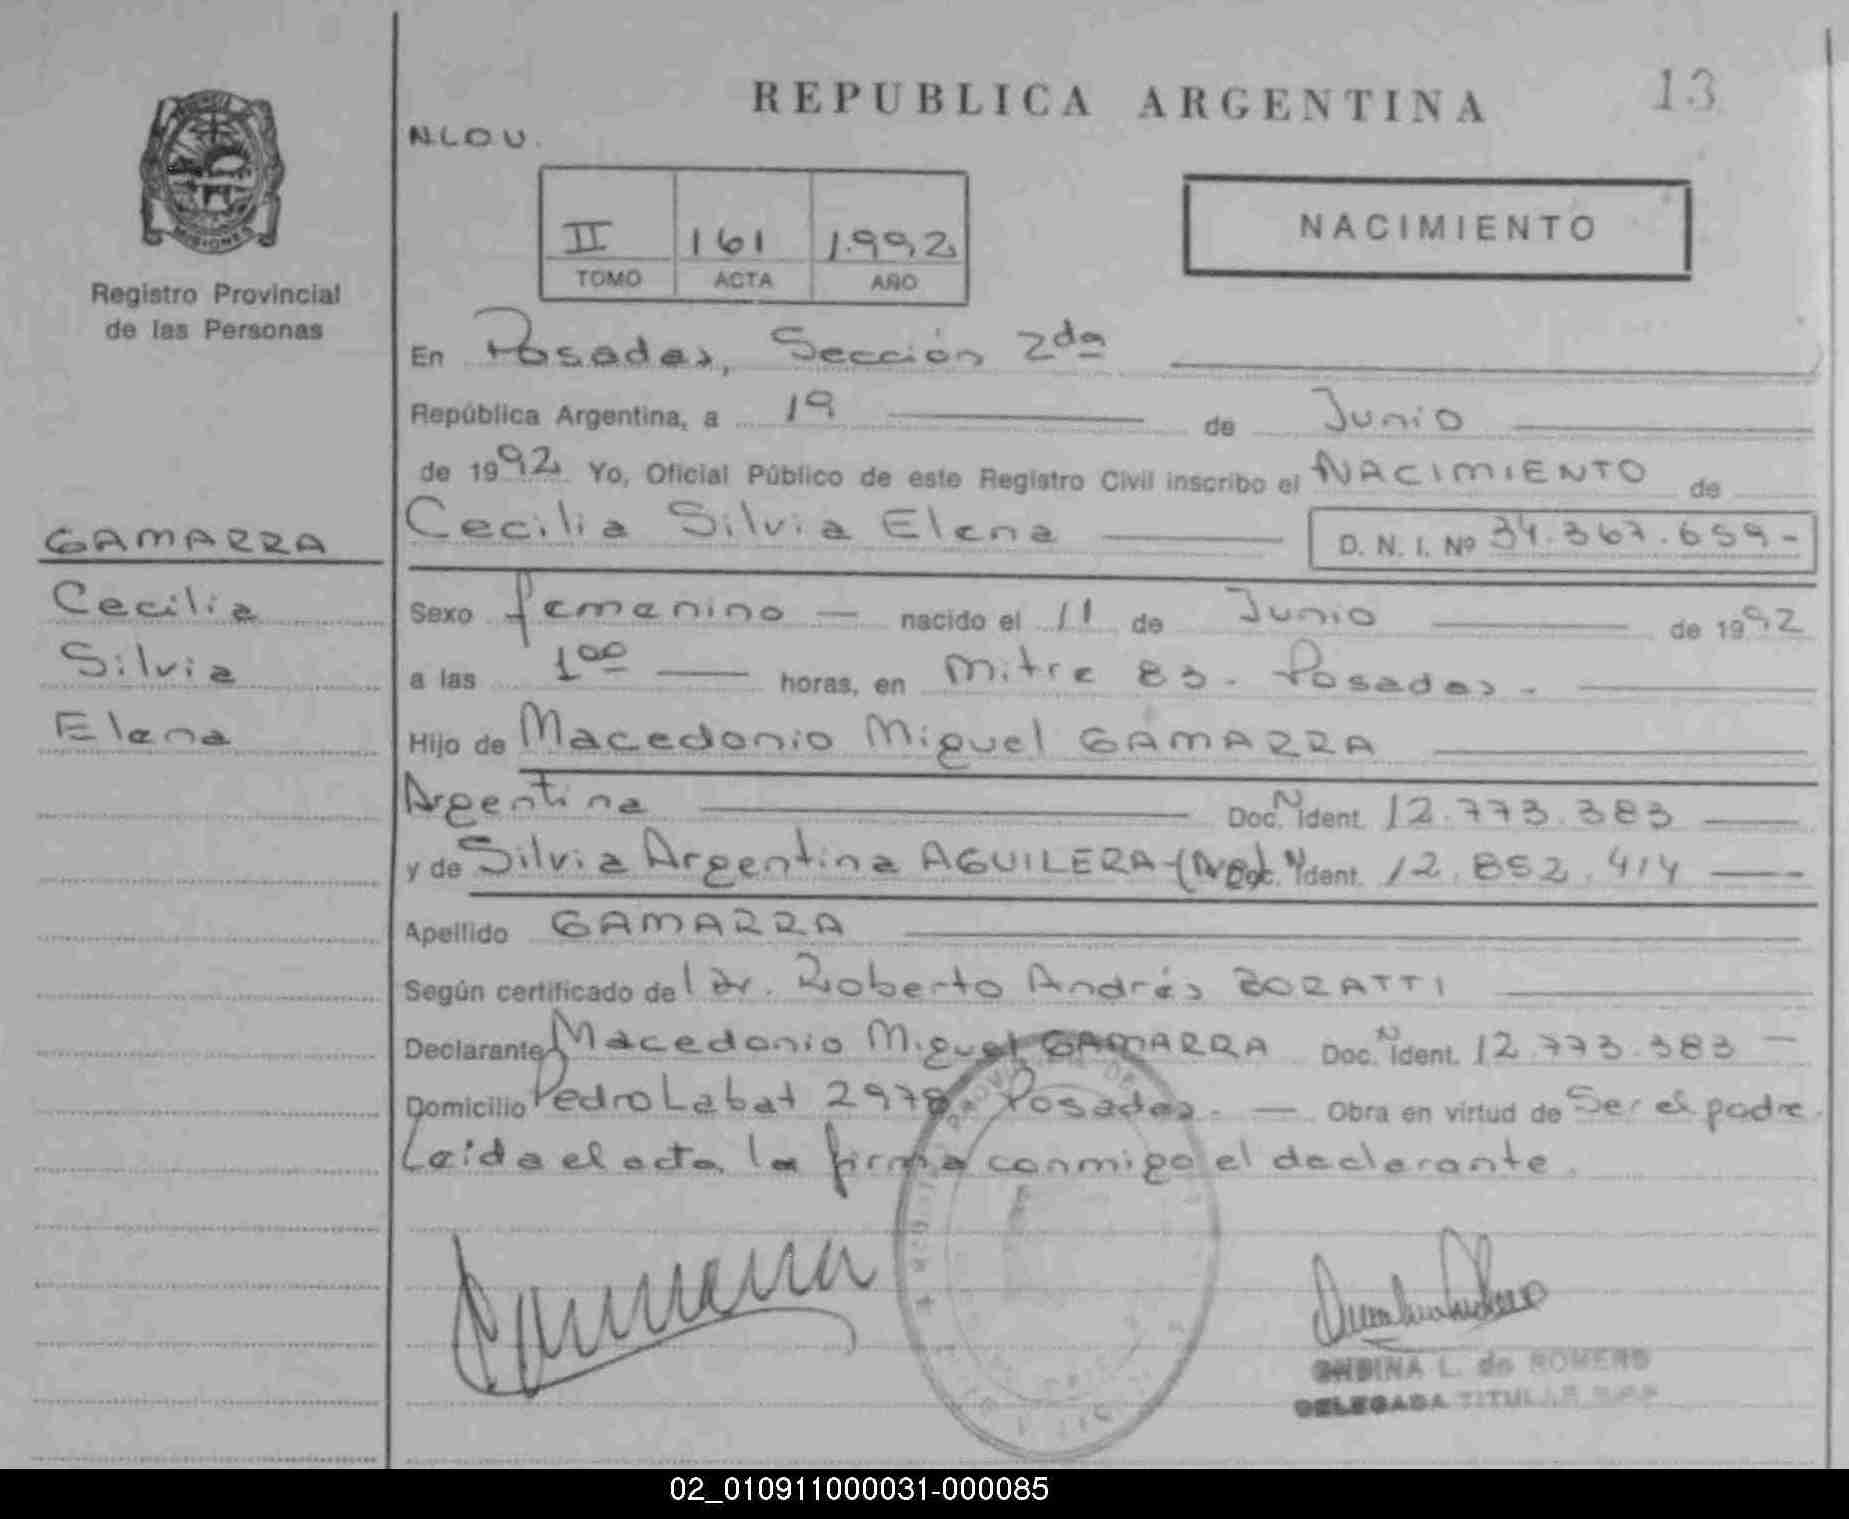 REPUBLICA ARGENTINA
13
N.L.O.U.
MISIONES
Registro Provincial
de las Personas
II 161 1.992
TOMO ACTA AÑO
NACIMIENTO
En Posadas, Sección 2da
República Argentina, a 19 de Junio
de 1992 Yo, Oficial Público de este Registro Civil inscribo el NACIMIENTO de
Cecilia Silvia Elena D. N. I. Nº 34.367.659-
GAMARRA
Cecilia
Silvia
Elena
Sexo femenino — nacido el 11 de Junio de 1992
a las 1 00 horas, en Mitre 83. Posadas.
Hijo de Macedonio Miguel GAMARRA
Argentina Doc. N Ident. 12.773.383
y de Silvia Argentina AGUILERA - Doc. N Ident. 12.852.414
Apellido GAMARRA
Según certificado del Dr. Roberto Andrés
Declarante Macedonio Miguel GAMARRA Doc. N Ident. 12.773.383
Domicilio Pedro Labat 2978 Posadas. — Obra en virtud de Ser el padre.
Leida el acta, la firma conmigo el declarante.
ONDINA L. de ROMERO
DELEGADA TITULAR
02_010911000031-000085